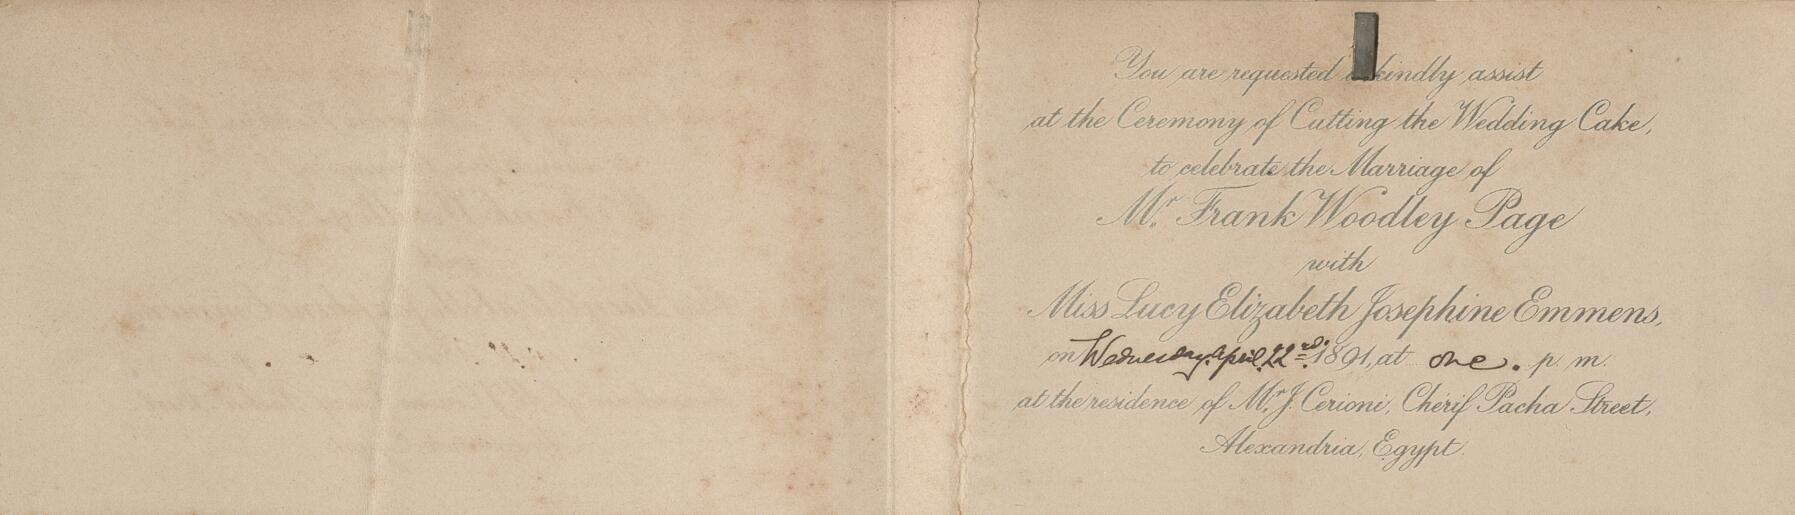 You are requested kindly assist
at the Ceremony of Cutting the Wedding Cake,
to celebrate the Marriage of
Mr. Frank Woodley Page
with
Miss Lucy Elizabeth Josephine Emmens,
on Wednesday. April. 22nd. 1891, at one. p. m.
at the residence of Mr. J. Cerioni, Chérif Pacha Street,
Alexandria, Egypt.